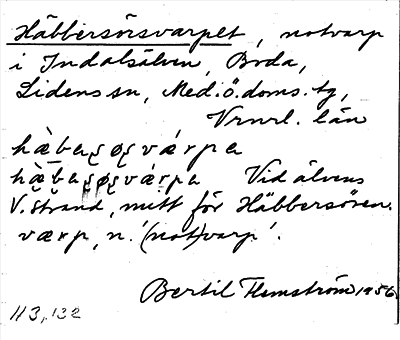 Häbbersörsvarpet, notvarp
i Indalsälven, Boda,
Lidens sn, Med.ö.doms. tg,
Vrnrl. län
Vid älvens
V. strand, mitt för Häbbersören.
værp, n. '(not)varp'.
Bertil Flemström 1956
113,132